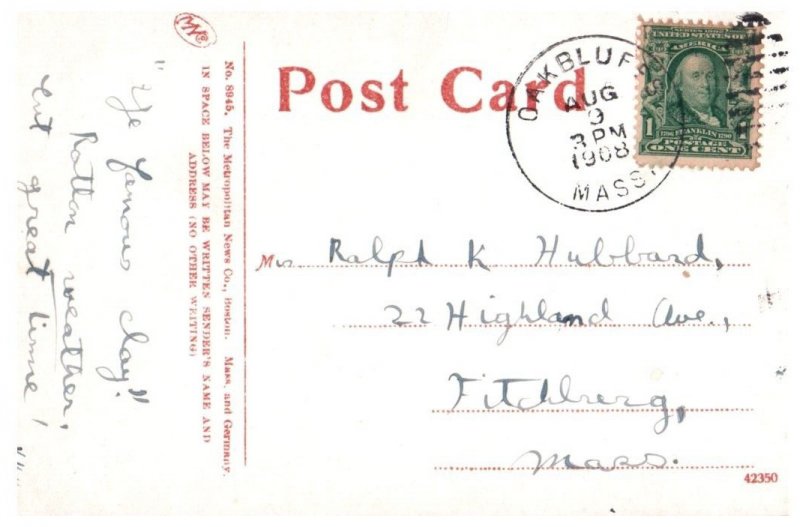 Post Card
OAK BLUFFS
AUG
9
3 PM
1908
MASS.
SERIES 1902
UNITED STATES OF
AMERICA
1 1706 FRANKLIN 1790 1
POSTAGE
ONE CENT
No. 8945. The Metropolitan News Co., Boston. Mass, and Germany.
IN SPACE BELOW MAY BE WRITTEN SENDER'S NAME AND
ADDRESS (NO OTHER WRITING)
"Ye famous clay".
Rotten weather,
but great time!
Mrs. Ralph K Hubbard,
22 Highland Ave.,
Fitchburg,
Mass.
42350